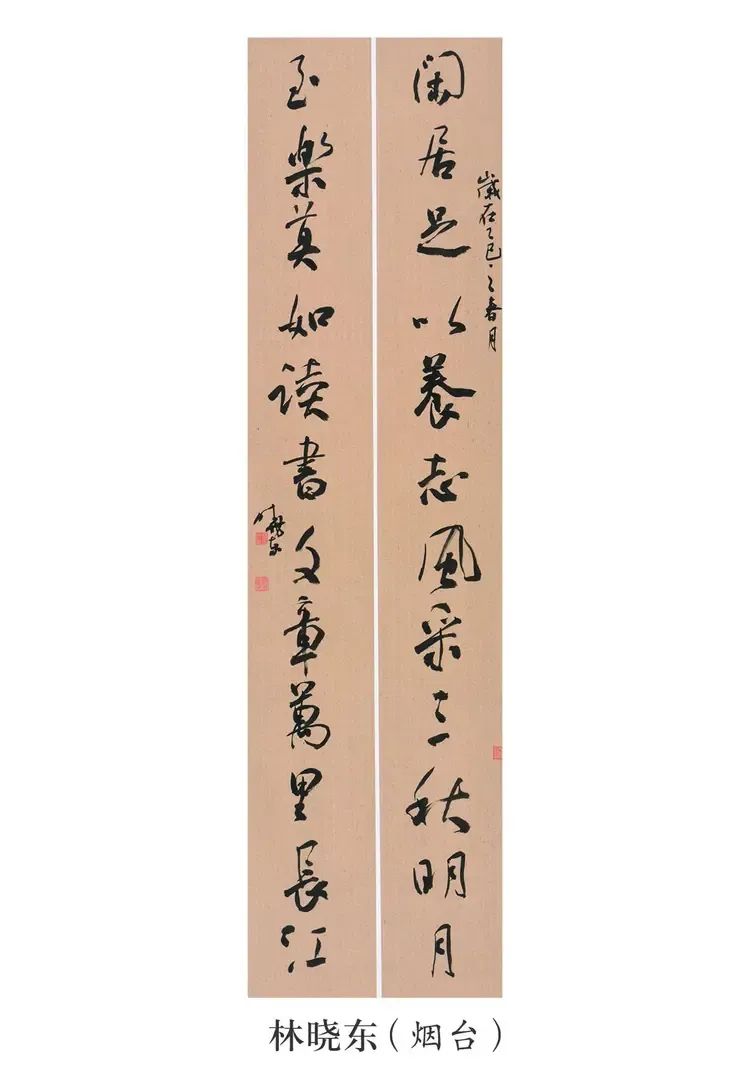 闲居足以养志风采三秋明月
岁在乙巳之春月
至樂莫如读書文章萬里長江
晓东
林晓东（烟台）